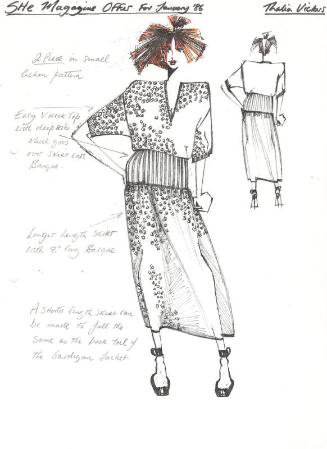 SHe Magazine Offer For January '86
Thalia Vickers
2 Piece in small
lichen pattern
Easy V Neck Top
with deep rib
which goes
over skirt with
Basque.
Longer length skirt
with 8" long Basque
A shorter length skirt can
be made to fall the
same as the back tail of
the Cardigan Jacket.